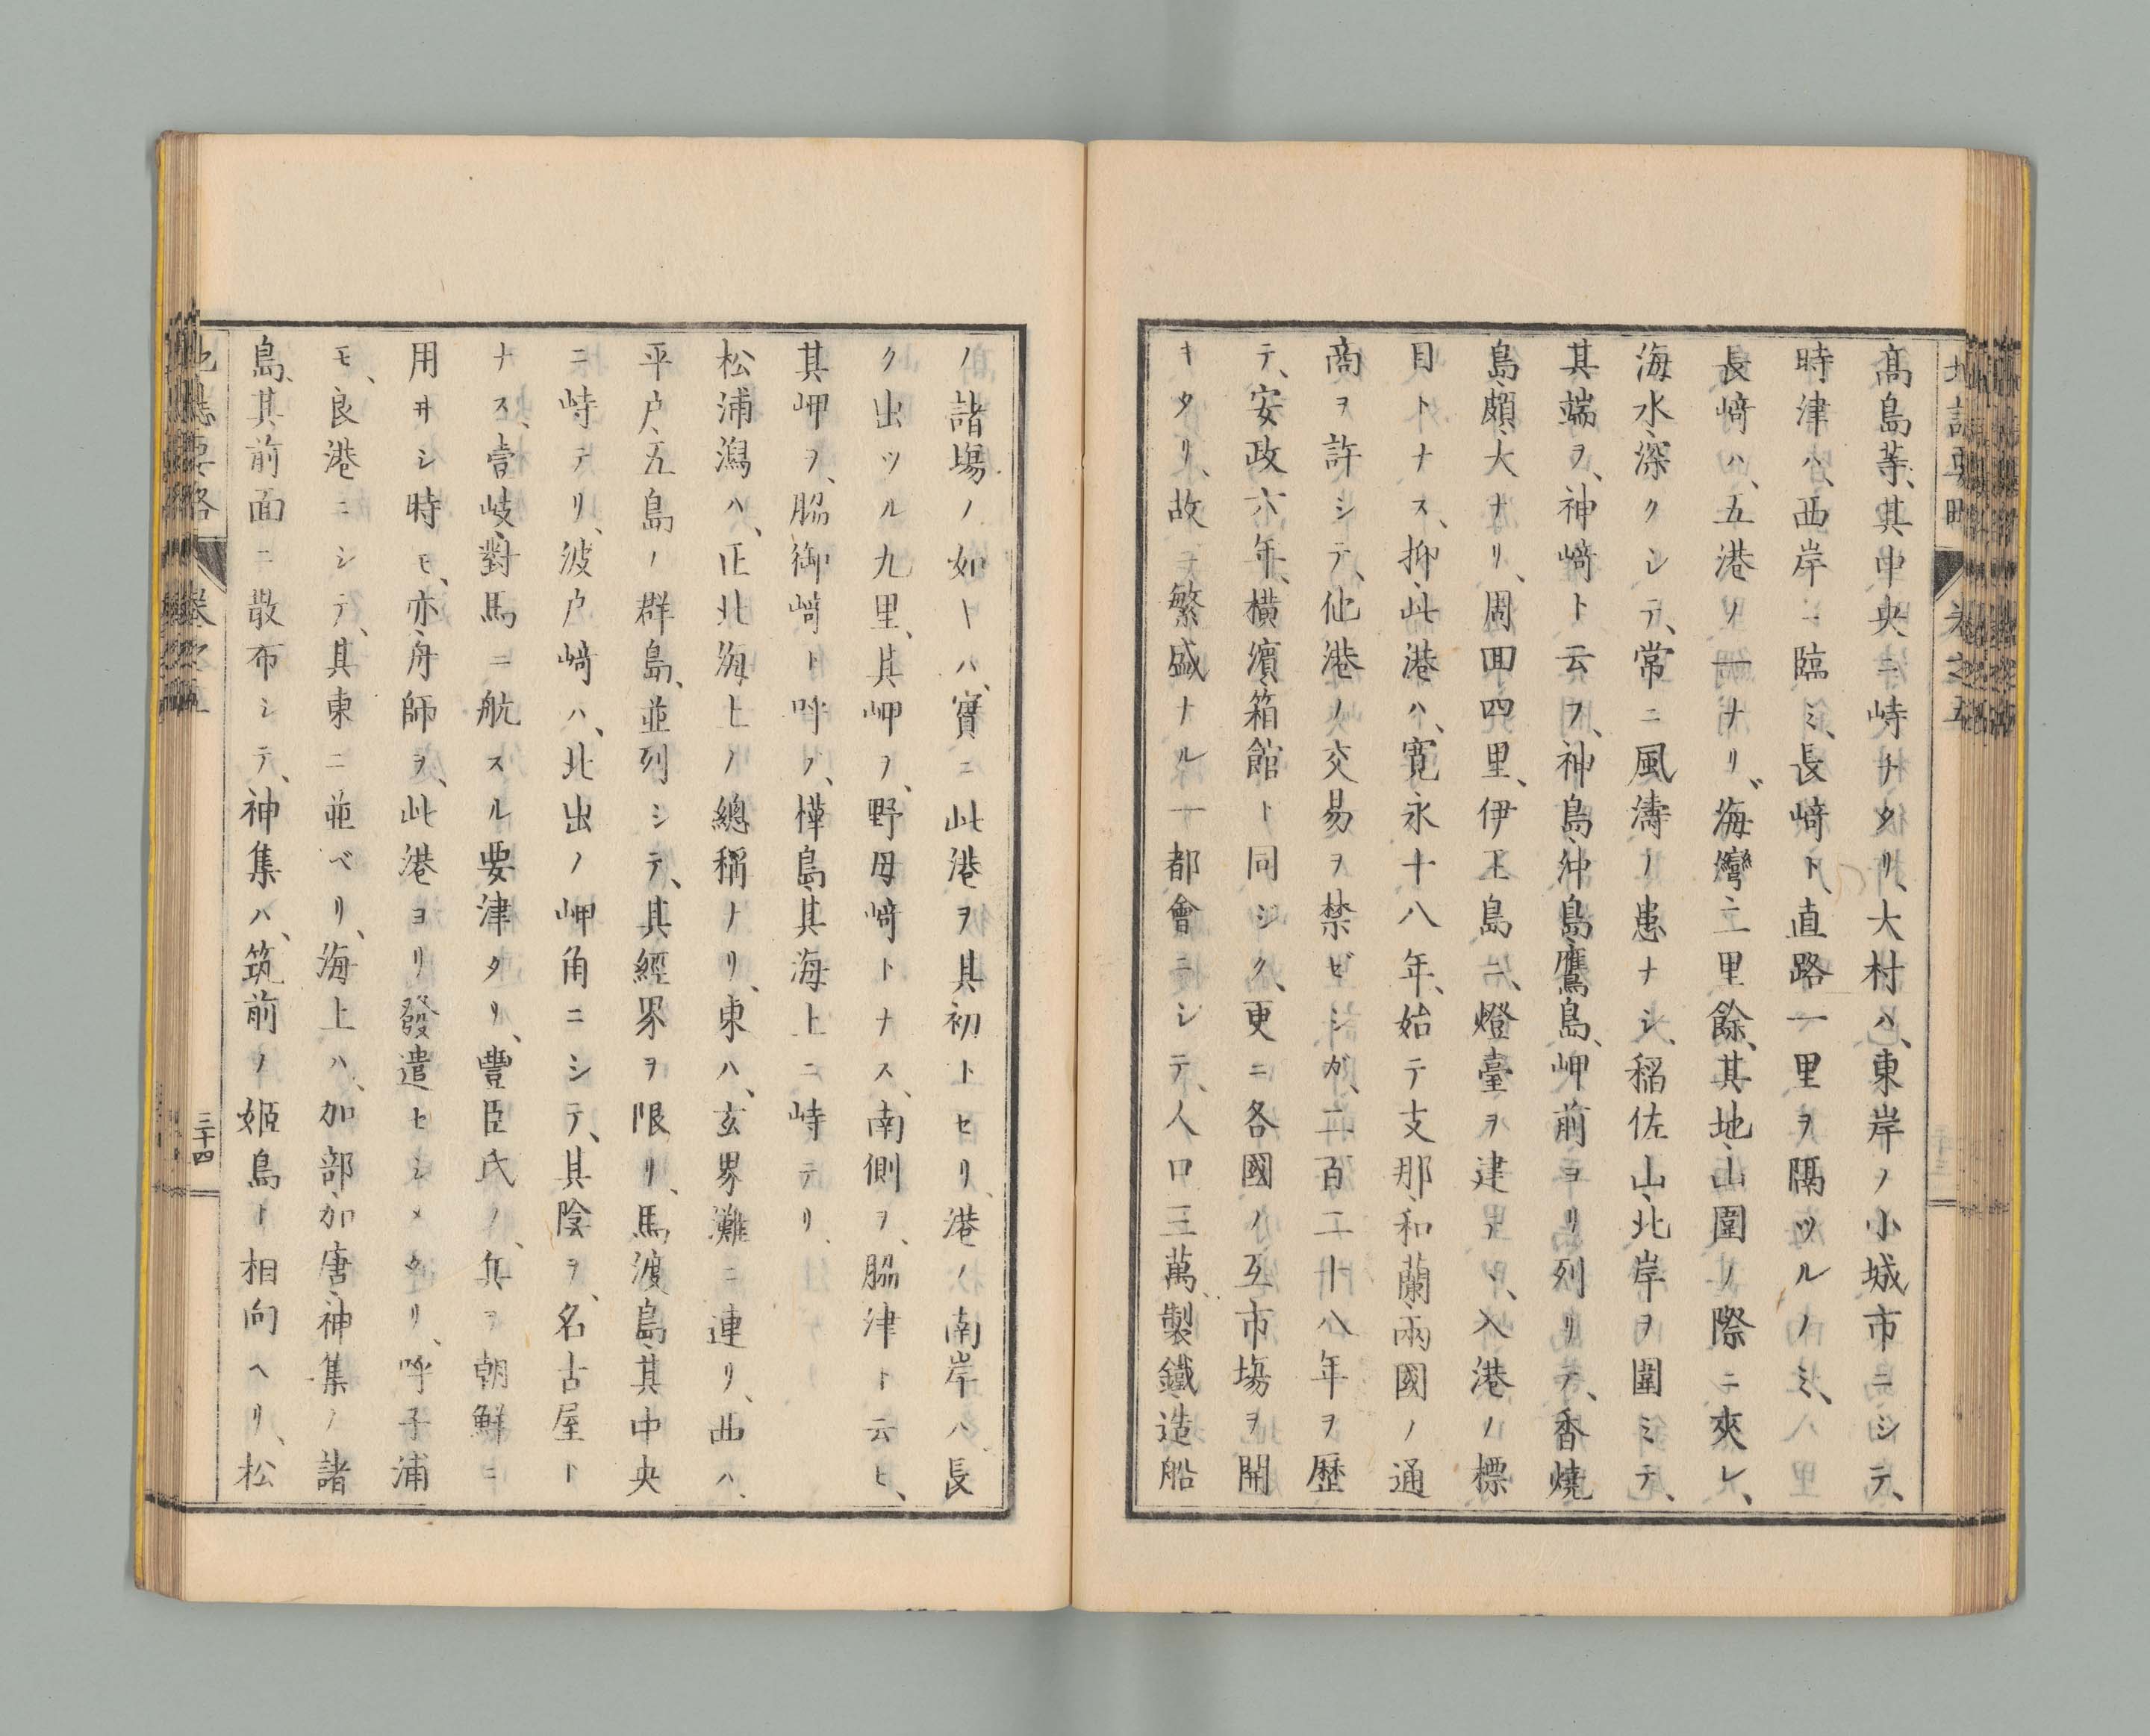 高島等、其中央ニ峙チタリ、大村ハ、東岸ノ小城市ニシテ、
時津ハ、西岸ニ臨ミ、長﨑ト、直路一里ヲ隔ツルノミ、
長﨑ハ、五港ノ一ナリ、海灣二里餘、其地、山圍ノ際ニ夾レ、
海水、深クシテ、常ニ風濤ノ患ナシ、稲佐山、北岸ヲ圍ミテ、
其端ヲ、神﨑ト云フ、神島、沖島、鷹島、岬前ヨリ列リテ、香燒
島、頗大ナリ、周囬四里、伊王島ニ、燈臺ヲ建テ、入港ノ標
目トナス、抑、此港ハ、寛永十八年、始テ支那、和蘭、兩國ノ通
商ヲ許シテ、他港ノ交易ヲ禁ゼシガ、二百二十八年ヲ歴
テ、安政六年、橫濵、箱館ト同シク、更ニ各國ノ互市塲ヲ開
キタリ、故ヲ繁盛ナル一都會ニシテ、人口三萬、製鐵、造船
ノ諸塲ノ如キハ、實ニ此港ヲ其初トセリ、港ノ南岸ハ、長
ク出ツル九里、其岬ヲ、野母﨑トナス、南側ヲ、脇津ト云ヒ、
其岬ヲ、脇御﨑ト呼フ、樺島、其海上ニ峙テリ、
松浦潟ハ、正北海上ノ總稱ナリ、東ハ、玄界灘ニ連リ、西ハ、
平戸、五島ノ群島、並列シテ、其經界ヲ限リ、馬渡島、其中央
ニ峙テリ、波戸﨑ハ、北出ノ岬角ニシテ、其陰ヲ、名古屋ト
ナス、壹岐、對馬ニ航スル要津タリ、豐臣氏ノ、兵ヲ朝鮮ニ
用ヰシ時モ、亦、舟師ヲ、此港ヨリ發遣セシメタリ、呼子浦
モ、良港ニシテ、其東ニ並ベリ、海上ハ、加部、加唐、神集ノ諸
島、其前面ニ散布シテ、神集ハ、筑前ノ姬島ト相向ヘリ、松
地誌要略
卷之五
三十四